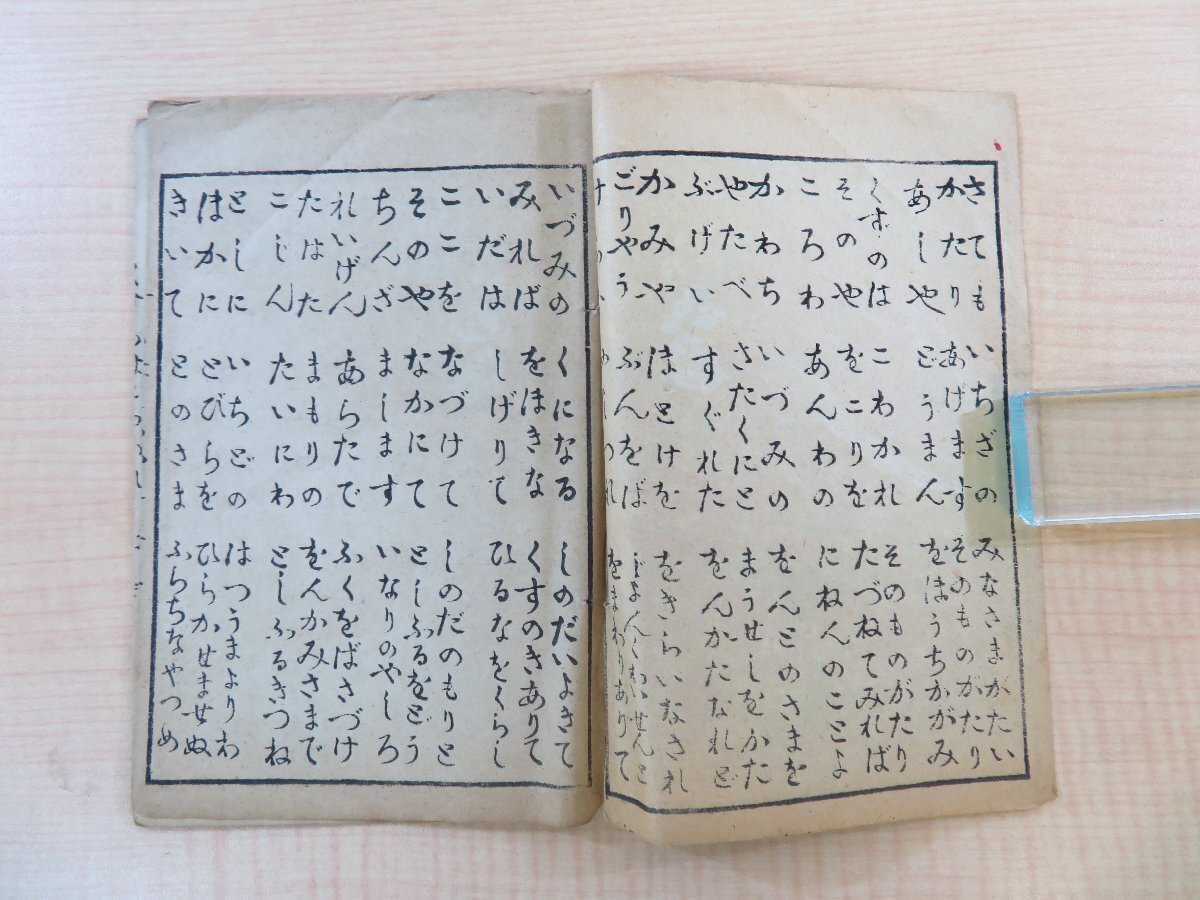 さても いちざの みなさまがたい
かたり あげます そのものがたり
あしや どうまん をほうちかがみ
くずのは こわかれ そのものがたり
そのや をこりを たづねてみれば
ころわ あんわの にねんのことよ
かわち いづみの をんとのさまを
やたべ さたくにと まうせしをかた
ぶげい すぐれた をんかたなれど
かみや ほとけを をきらいなされ
ごりやう ぶんをば じよんくわいせんと
をまわりありて
いづみの くになる しのだいよきて
みれば をほきな くすのきありて
いだは しげりて ひるなをくらし
ここを なづけて しのだのもりと
そのや なかにて としふるをどう
ちんざ まします いなりのやしろ
れいげん あらたで ふくをばさづけ
たはた まもりの をんかみさまで
こじん たいにわ としふるきつね
としに いちどの はつうまよりわ
ほかに とびらを ひらかせませぬ
きいて とのさま ふらちなやつめ